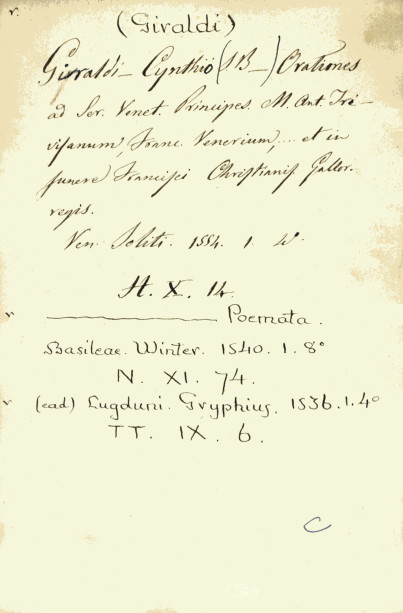 (Giraldi)
Girraldi – Cynthio (J B –) Orationes
ad Ser. Venet. Principes. M. Ant. Tri-
visanum, Franc. Venerium, ... et in
funere Francisci Christianis. Gallor.
regis.
Ven. Soliti. 1554. 1. 4°.
H. X. 14.
———— Poemata.
Basileae. Winter. 1540. 1. 8°
N. XI. 74.
(ead) Lugduni. Gryphius. 1536. 1. 4°
TT. IX. 6.
C